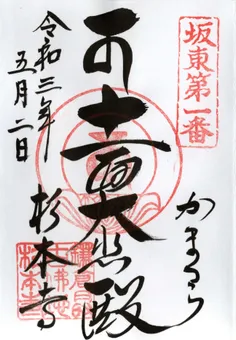 坂東第一番
かまくら
十一面大悲殿
令和三年
五月二日
杉本寺